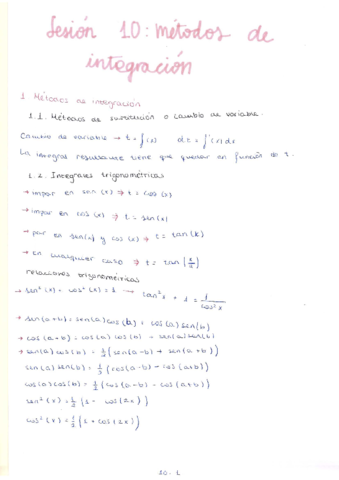 Sesión 10: métodos de
integración
1 Métodos de integración
1.1. Métodos de sustitución o cambio de variable.
Cambio de variable → t = f(x)   dt = f'(x) dx
La integral resultante tiene que quedar en función de t.
1.2. Integrales trigonométricas
→ impar en sen(x) ⇒ t = cos(x)
→ impar en cos(x) ⇒ t = sen(x)
→ par en sen(x) y cos(x) ⇒ t = tan(x)
→ En cualquier caso ⇒ t = tan(x/2)
relaciones trigonométricas
→ sen²(x) + cos²(x) = 1 → tan²x + 1 = 1/cos²x
→ sen(a+b) = sen(a)cos(b) + cos(a)sen(b)
→ cos(a+b) = cos(a)cos(b) - sen(a)sen(b)
→ sen(a)cos(b) = 1/2 (sen(a-b) + sen(a+b))
sen(a)sen(b) = 1/2 (cos(a-b) - cos(a+b))
cos(a)cos(b) = 1/2 (cos(a-b) - cos(a+b))
sen²(x) = 1/2 (1 - cos(2x))
cos²(x) = 1/2 (1 + cos(2x))
10-1